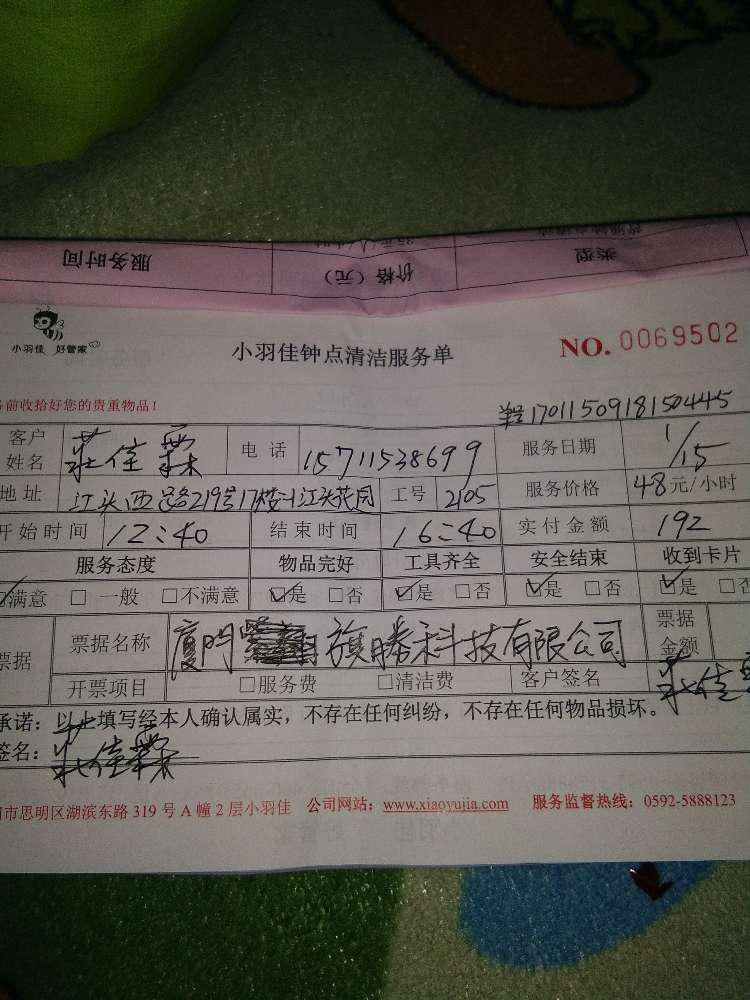 服务时间 价格（元） 类型
小羽佳 好管家
小羽佳钟点清洁服务单 NO. 0069502
前收拾好您的贵重物品！
170115091815044５
客户姓名 莊佳霖 电话 15711538699 服务日期 1/15
地址 江头西路219号17楼 江头花园 工号 2105 服务价格 48元/小时
开始时间 12:40 结束时间 16:40 实付金额 192
服务态度 物品完好 工具齐全 安全结束 收到卡片
☑满意 □一般 □不满意 ☑是 □否 ☑是 □否 ☑是 □否 ☑是 □否
票据 票据名称 厦門旗勝科技有限公司 票据金额
开票项目 □服务费 □清洁费 客户签名 莊佳
承诺：以上填写经本人确认属实，不存在任何纠纷，不存在任何物品损坏。
签名：莊佳霖
市思明区湖滨东路 319 号 A 幢 2 层小羽佳 公司网站：www.xiaoyujia.com 服务监督热线：0592-5888123